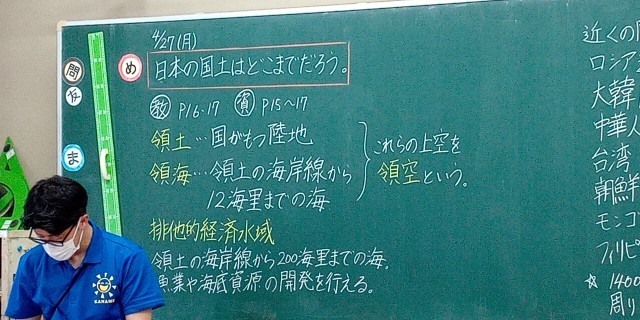 4/27(月)
問
め
日本の国土はどこまでだろう。
教 P16-17 資 P15~17
領土…国がもつ陸地
領海…領土の海岸線から
12海里までの海
これらの上空を
領空という。
ま
排他的経済水域
領土の海岸線から200海里までの海。
漁業や海底資源の開発を行える。
近くの
ロシア
大韓
中華人
台湾
朝鮮
モンゴ
フィリピ
☆ 1400
周り